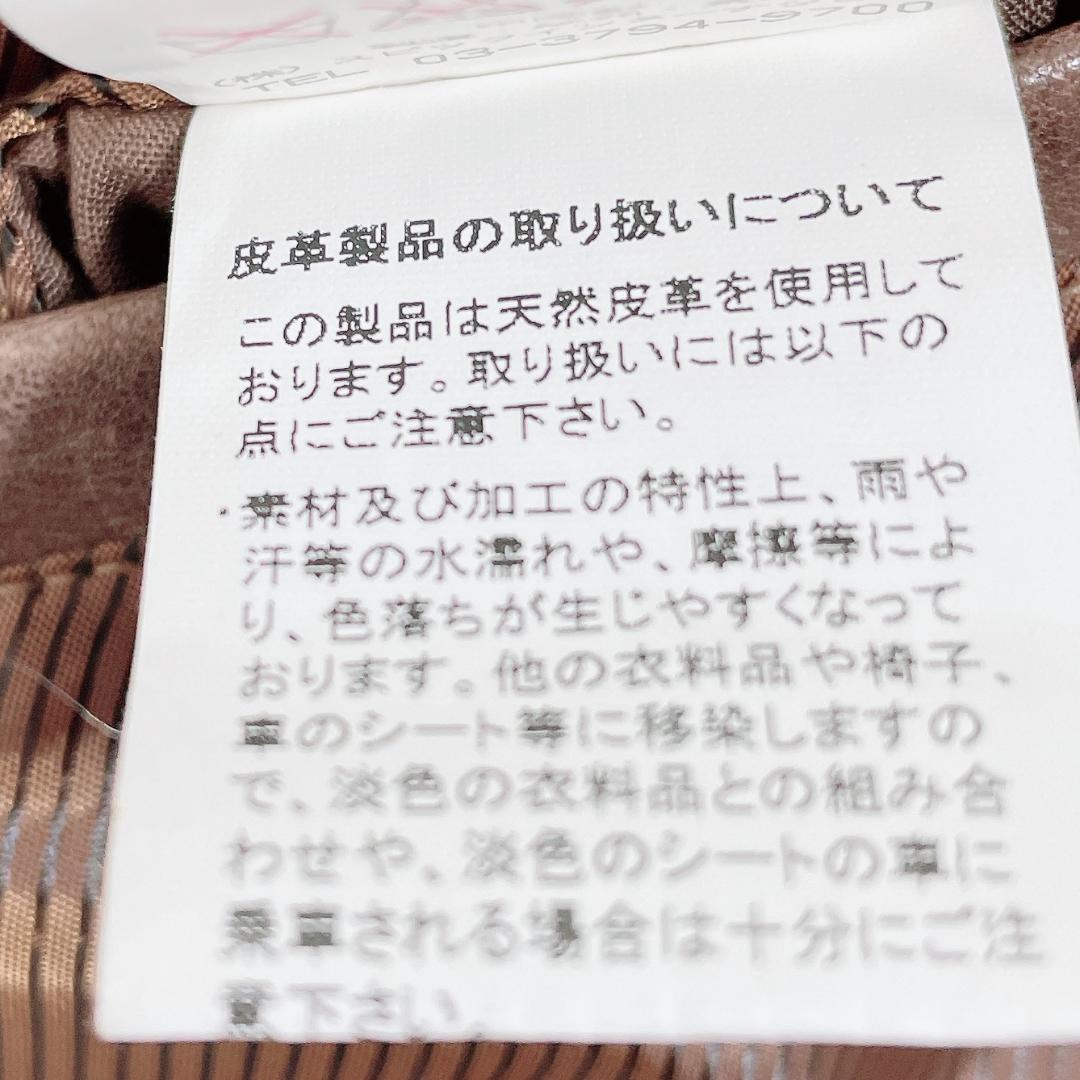 TEL 03-3794-9700
皮革製品の取り扱いについて
この製品は天然皮革を使用して
おります。取り扱いには以下の
点にご注意下さい。
・素材及び加工の特性上、雨や
汗等の水濡れや、摩擦等によ
り、色落ちが生じやすくなって
おります。他の衣料品や椅子、
車のシート等に移染しますの
で、淡色の衣料品との組み合
わせや、淡色のシートの車に
乗車される場合は十分にご注
意下さい。